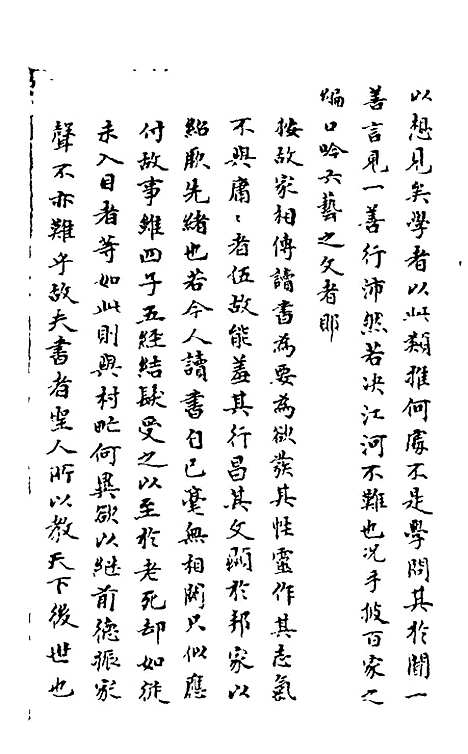 以想見矣學者以此類推何處不是學問其於聞一
善言見一善行沛然若决江河不難也况手披百家之
編口吟六藝之文者耶
按故家相傳讀書為要為欲發其性靈作其志氣
不與庸〻者伍故能羞其行昌其文顯於邦家以
紹厥先緒也若今人讀書自己毫無相関只似應
付故事雖四子五經結髮受之以至於老死却如從
未入目者等如此則與村氓何異欲以継前德振家
聲不亦難乎故夫書者聖人所以教天下後世也